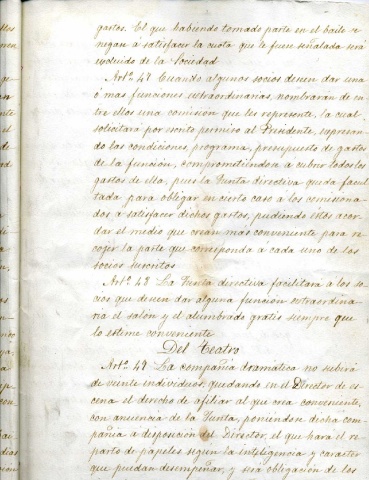 gastos. El que habiendo tomado parte en el baile se
niegan á satisfacer la cuota que le fuese señalada será
escluido de la Sociedad
Artº. 47 Cuando algunos socios deseen dar una
ó mas funciones estraordinarias, nombrarán de en-
tre ellos una comision que les represente, la cual
solicitará por escrito permiso al Presidente, espresan-
do las condiciones, programa, presupuesto de gastos
de la función, comprometiéndose á cubrir todos los
gastos de ella, pues la Junta directiva queda facul-
tada para obligar en cierto caso á los comisiona-
dos á satisfacer dichos gastos, pudiendo estos acor-
dar el medio que crean más conveniente para re-
cojer la parte que corresponda á cada uno de los
socios suscritos
Artº. 48 La Junta directiva facilitará á los so-
cios que deseen dar alguna función estraordina-
ria el salón y el alumbrado gratis siempre que
lo estime conveniente
Del teatro
Artº. 49 La compañia dramática no subirá
de veinte individuos, quedando en el Director de es-
cena el derecho de afiliar al que crea conveniente,
con anuencia de la Junta, poniéndose dicha com-
pañia á disposición del Director, el que hará el re-
parto de papeles segun la inteligencia y carácter
que puedan desempeñar, y será obligación de los